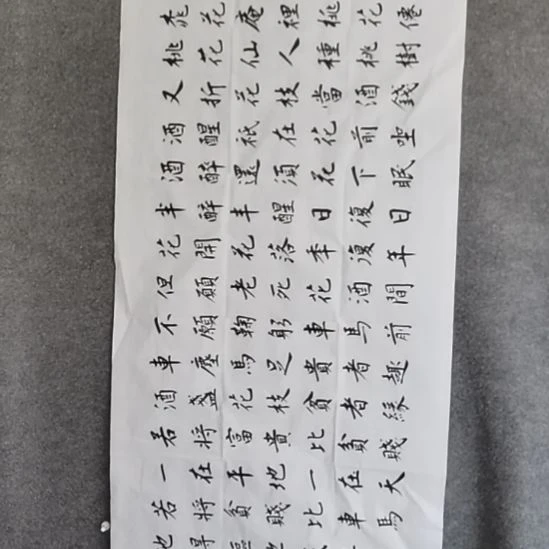 桃花庵裡桃花僊
桃花仙人種桃樹
又折花枝當酒錢
酒醒祇在花前坐
酒醉還須花下眠
半醉半醒日復日
花開花落季復年
但願老死花酒間
不願鞠躬車馬前
車塵馬足貴者趣
酒盞花枝貧者緣
若將富貴比貧賤
一在平地一在天
若將貧賤比車馬